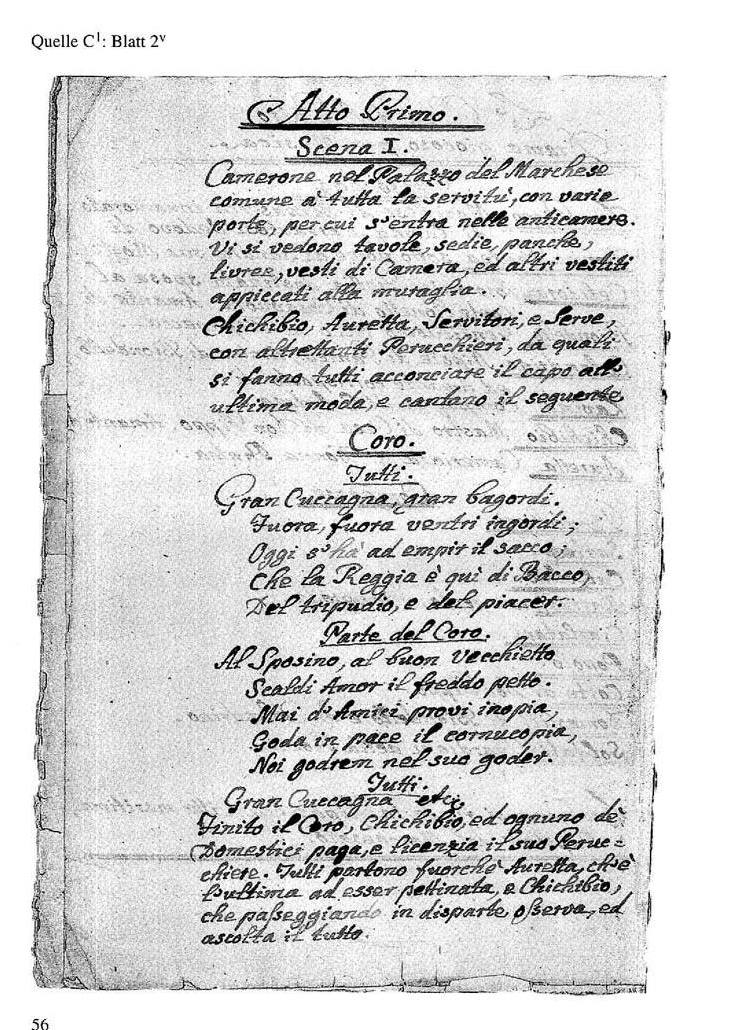 Quelle C¹: Blatt 2ᵛ
Atto Primo.
Scena I.
Camerone nel Palazzo del Marchese
comune à tutta la servitù, con varie
porte, per cui s'entra nelle anticamere.
Vi si vedono tavole, sedie, panche,
livree, vesti di Camera, ed altri vestiti
appiccati alla muraglia.
Chichibio, Auretta, Servitori, e Serve,
con altrettanti Perucchieri, da quali
si fanno tutti acconciare il capo all'
ultima moda, e cantano il seguente
Coro.
Tutti.
Gran Cuccagna, gran bagordi.
Fuora, fuora ventri ingordi;
Oggi s'ha ad empir il sacco;
Che la Reggia è quì di Bacco,
Del tripudio, e del piacer.
Parte del Coro.
Al Sposino, al buon vecchietto
Scaldi Amor il freddo petto.
Mai d'Amici provi inopia,
Goda in pace il cornucopia,
Noi godrem nel suo goder.
Tutti.
Gran Cuccagna etc.
Finito il Coro, Chichibio, ed ognuno dè
Domestici paga, e licenzia il suo Peruc=
chiere. Tutti partono fuorchè Auretta, ch'è
l'ultima ad esser pettinata, e Chichibio,
che passeggiando in disparte osserva, ed
ascolta il tutto.
56